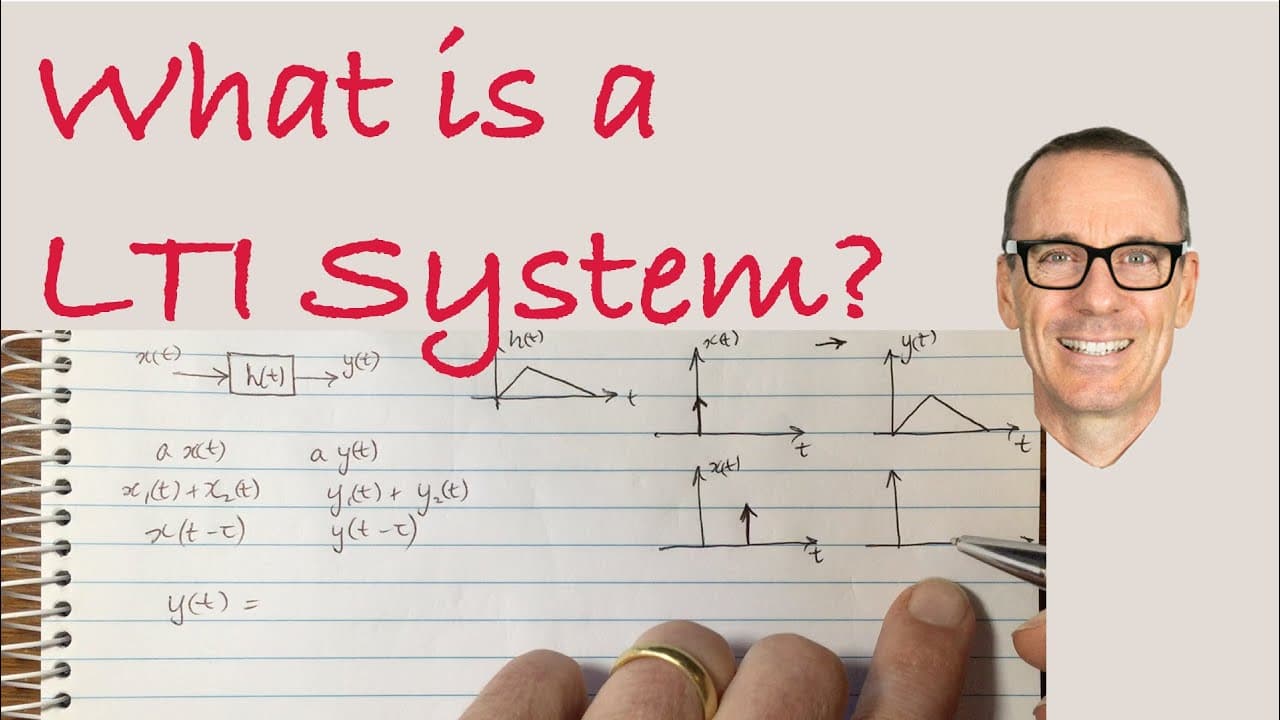 What is a
LTI System?
x(t) h(t) y(t)
h(t)
t
x(t)
t
→
y(t)
t
a x(t) a y(t)
x₁(t) + x₂(t) y₁(t) + y₂(t)
x(t-τ) y(t-τ)
x(t)
t
y(t) =